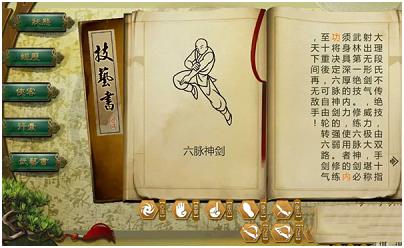 狀態
俠客
行囊
武藝書
技藝書
六脉神剑
大理段氏不传绝技,由双手十指
射出无形剑气,威力极大,堪称
武林第一绝技。修练六脉神剑必
须身具深厚的内力,使用者的内
功将决定六脉神剑的强弱。修练
至十重后,可自由轮转六路剑气
,天下间再无敌手!